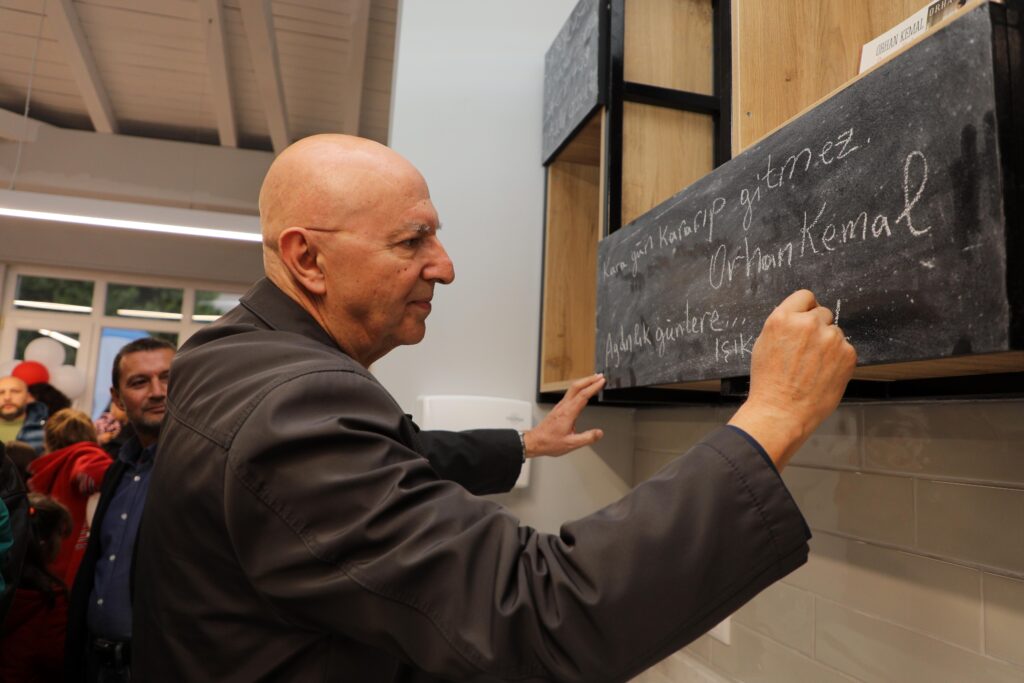 ORHAN KEMAL
ORHAN
Kara gün kararıp gitmez.
Orhan Kemal
Aydınlık günlere...
Işık